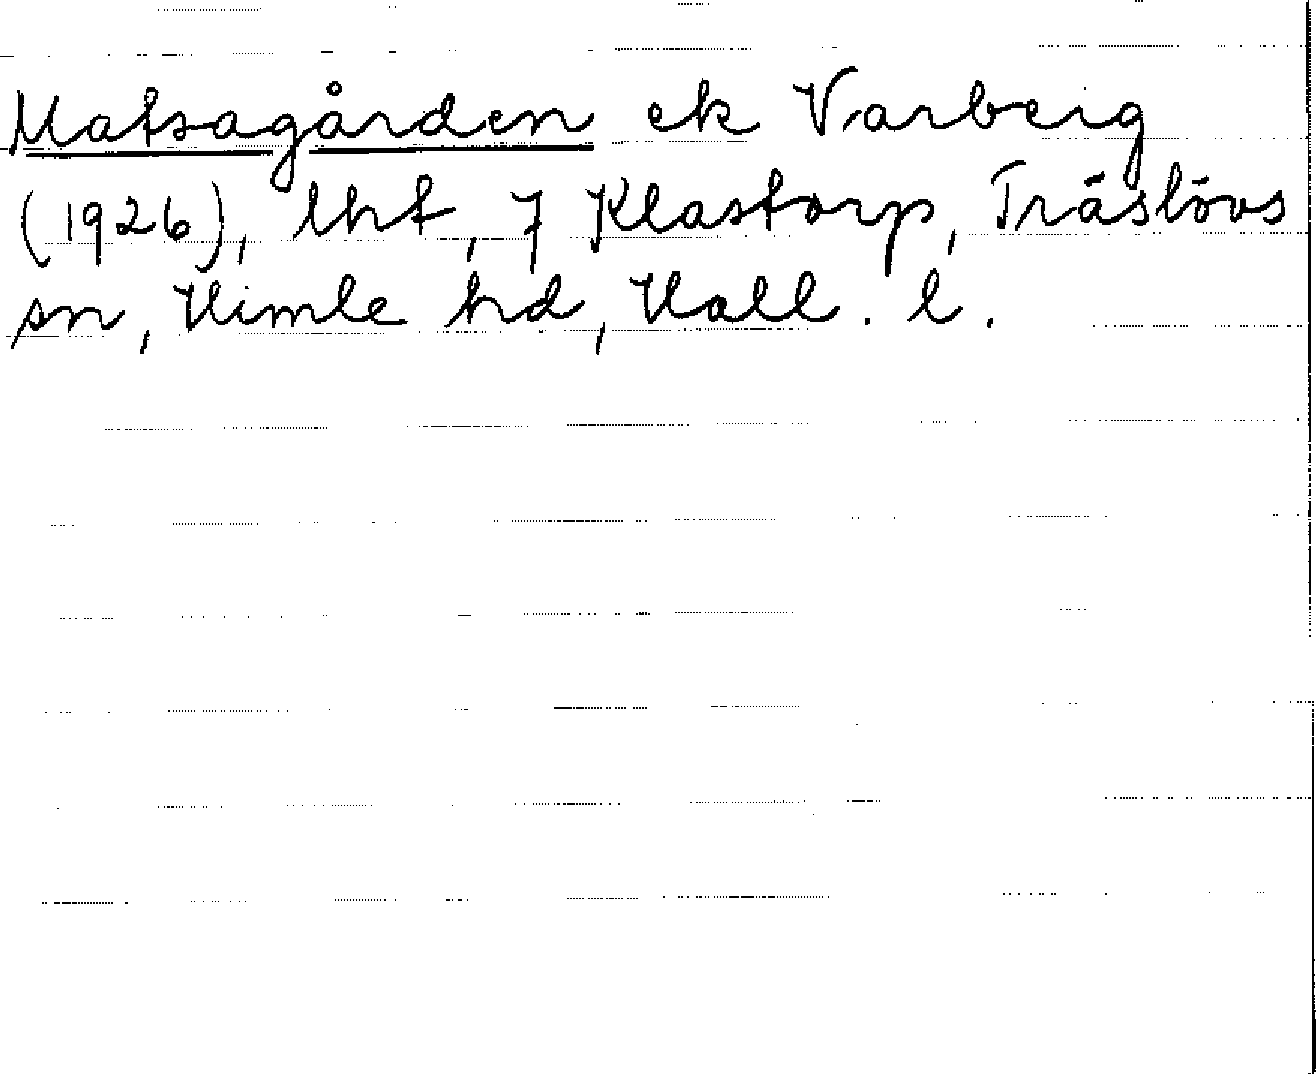 Matsagården ek Varberg
(1926), lht, 7 Klastorp, Träslövs
sn, Himle hd, Hall. l.